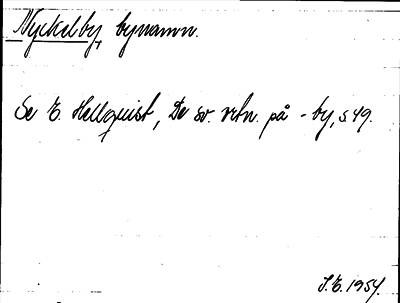 Nyckelby, bynamn.
Se E. Hellquist, De sv. ortn. på -by, s 49.
S.E. 1954.